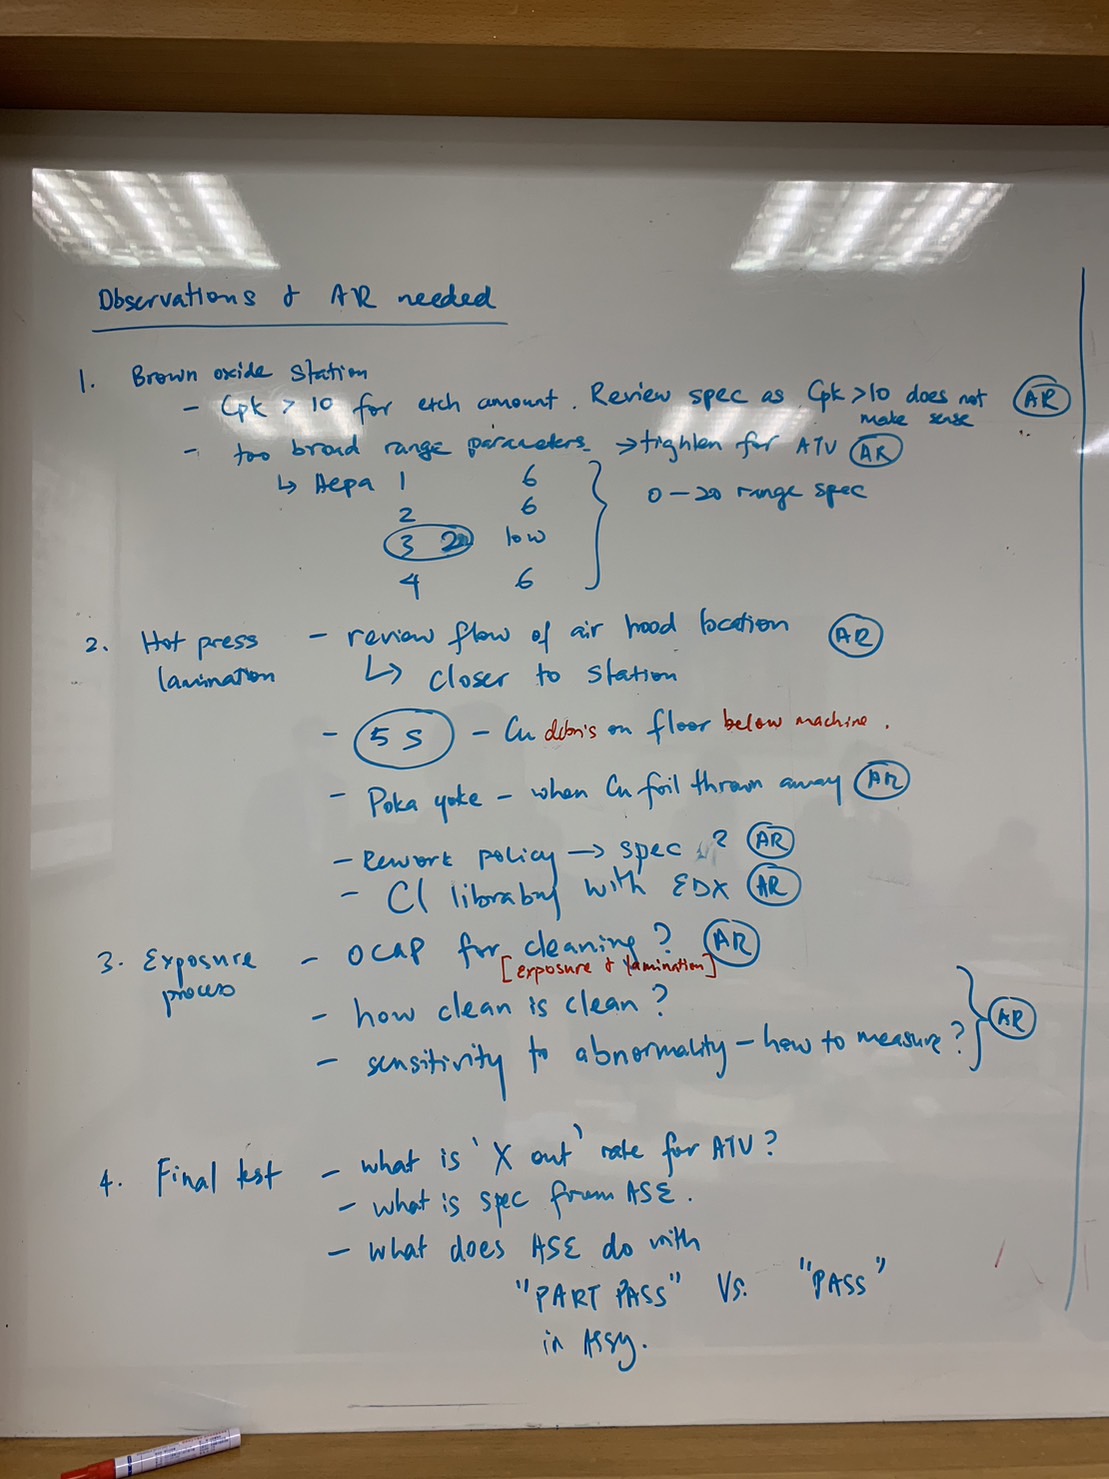 Observations & AR needed
1. Brown oxide station
- Cpk > 10 for etch amount. Review spec as Cpk >10 does not make sense AR
- too broad range parameters → tighten for ATV AR
↳ Hepa 1 6
2 6
3 low
4 6
0 – 20 range spec
2. Hot press lamination - review flow of air hood location AR
↳ closer to station
- 5S - Cu debris on floor below machine.
- Poka yoke - when Cu foil thrown away AR
- Rework policy → spec ? AR
- CI with EDX AR
3. Exposure process - OCAP for cleaning? AR
[exposure & lamination]
- how clean is clean?
- sensitivity to abnormality - how to measure? AR
4. Final test - what is 'X out' rate for ATV?
- what is spec from ASE.
- what does ASE do with
"PART PASS" Vs. "PASS"
in Assy.